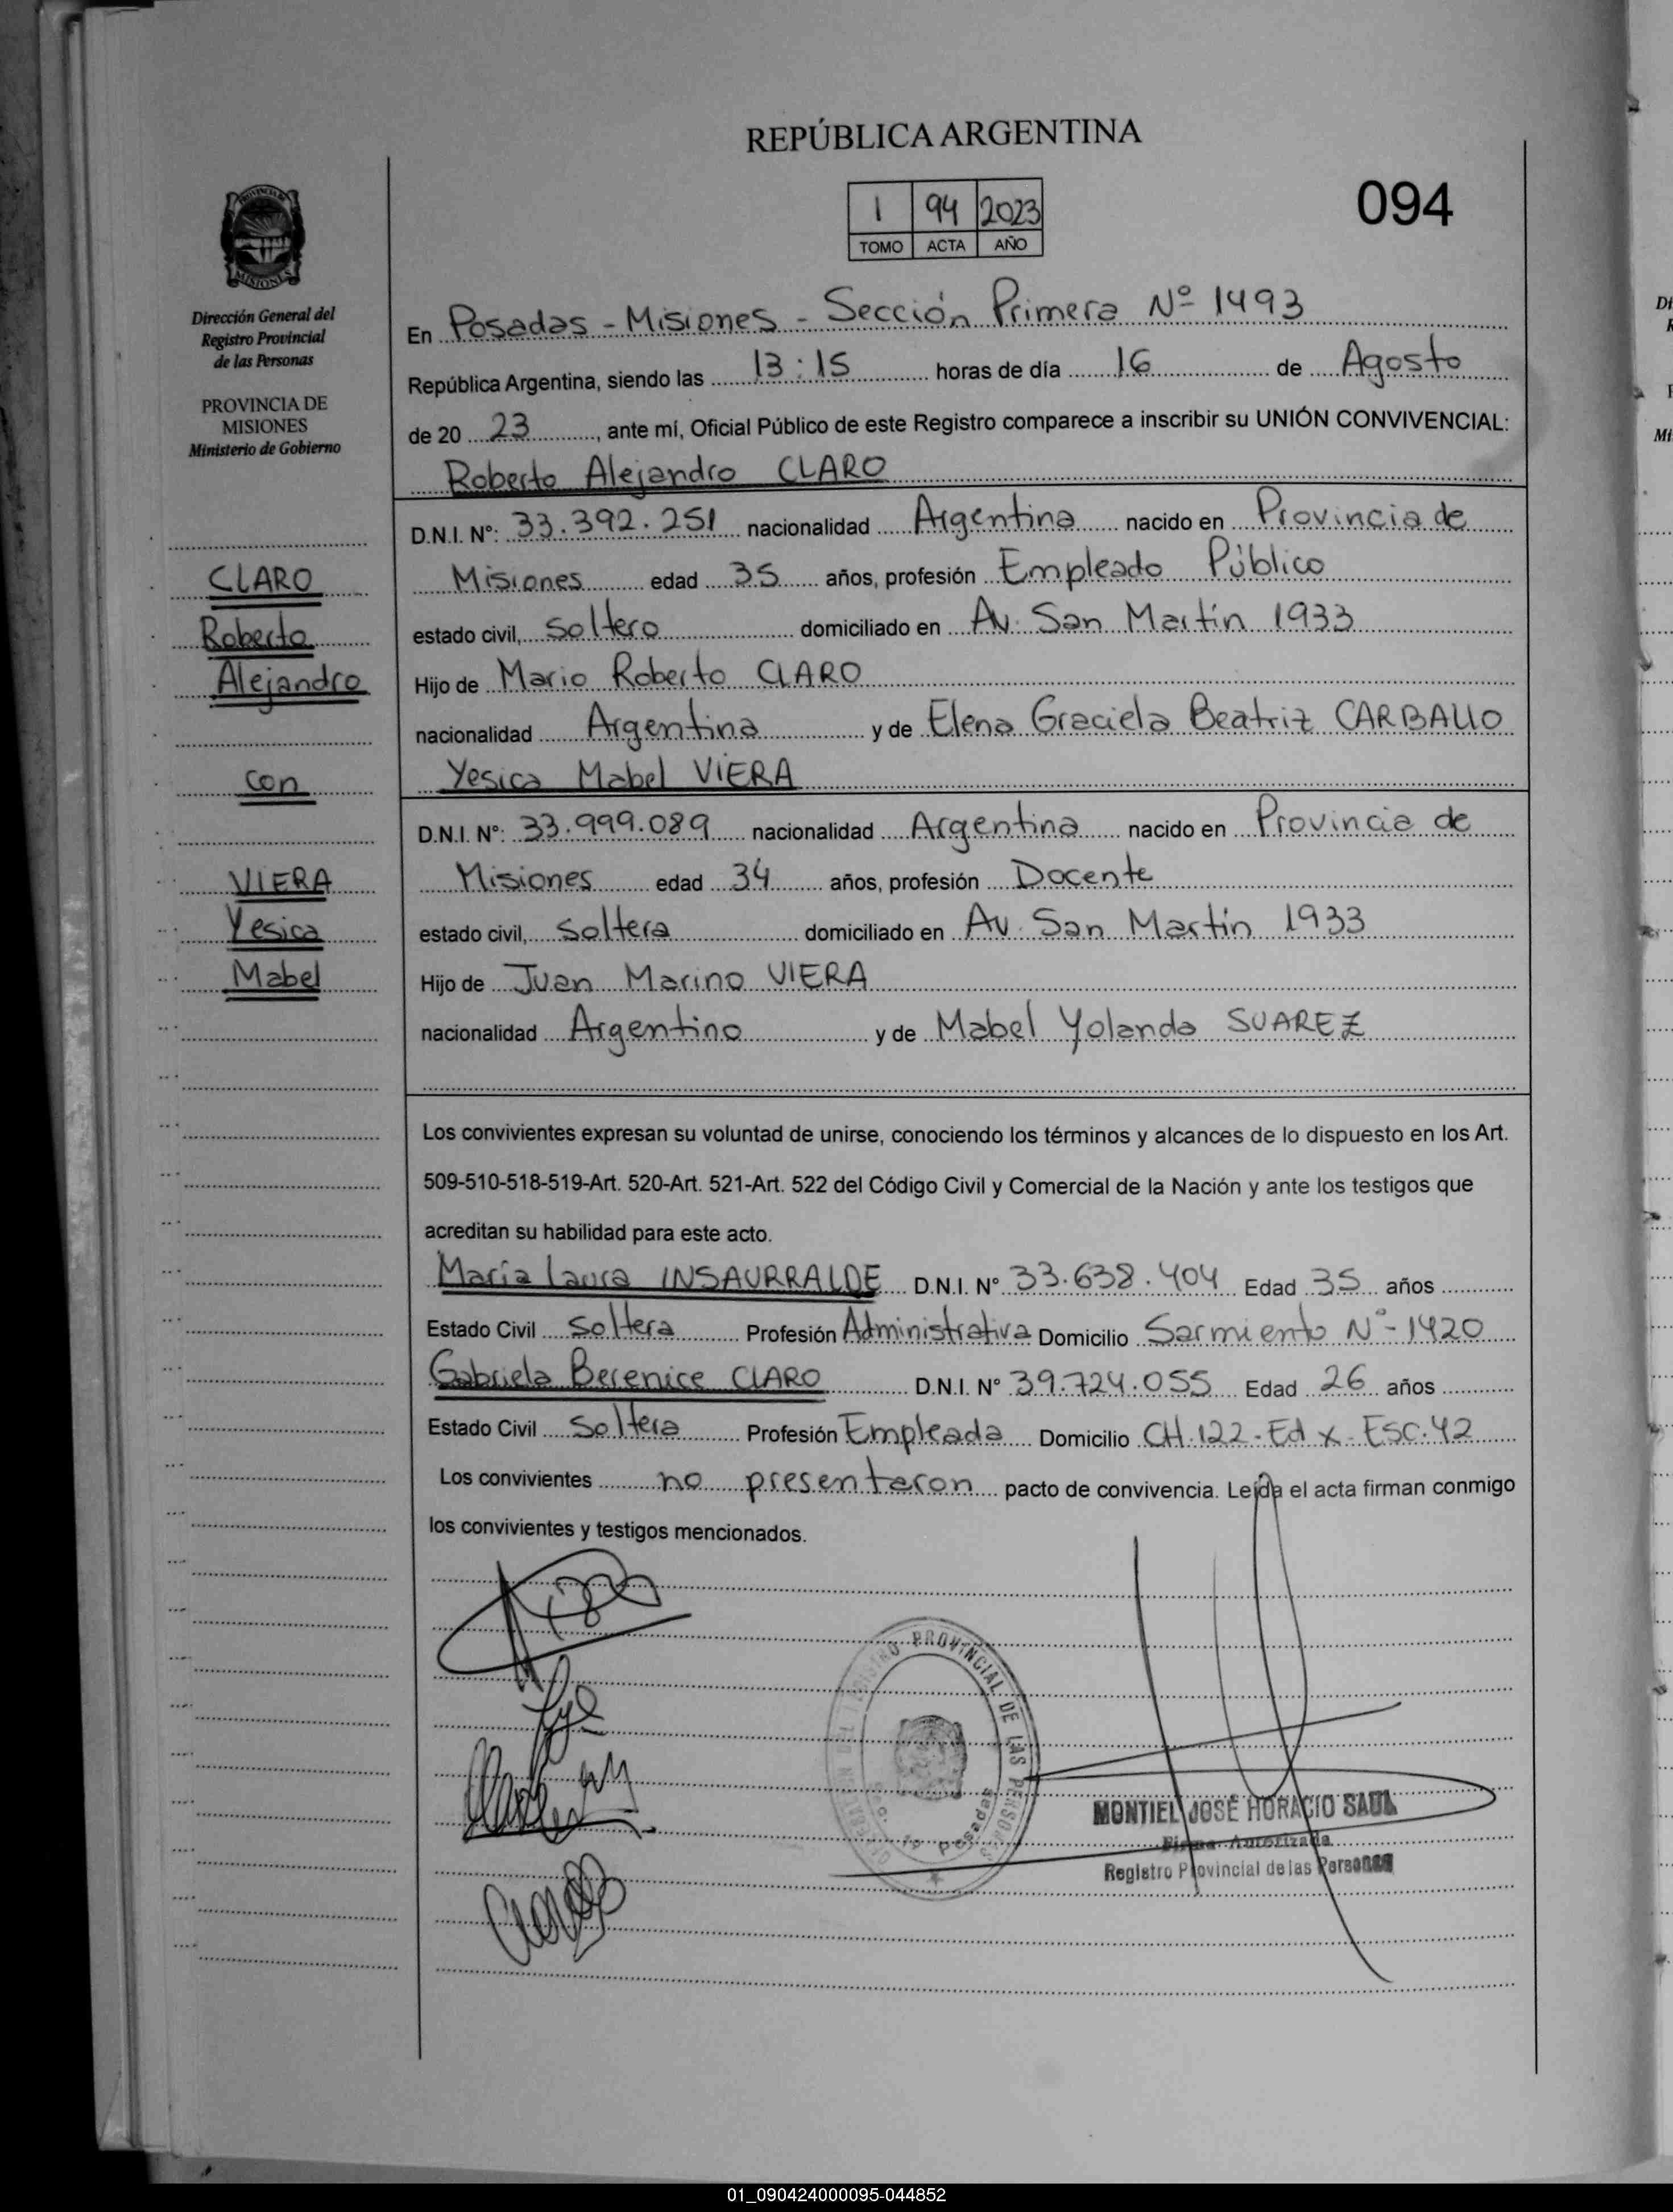 REPÚBLICA ARGENTINA
1 94 2023
TOMO ACTA AÑO
094
PROVINCIA DE
MISIONES
Dirección General del
Registro Provincial
de las Personas
PROVINCIA DE
MISIONES
Ministerio de Gobierno
CLARO
Roberto
Alejandro
con
VIERA
Yesica
Mabel
En Posadas - Misiones - Sección Primera Nº 1493
República Argentina, siendo las 13:15 horas de día 16 de Agosto
de 20 23, ante mí, Oficial Público de este Registro comparece a inscribir su UNIÓN CONVIVENCIAL:
Roberto Alejandro CLARO
D.N.I. Nº: 33.392.251 nacionalidad Argentina nacido en Provincia de
Misiones edad 35 años, profesión Empleado Público
estado civil, Soltero domiciliado en Av. San Martín 1933
Hijo de Mario Roberto CLARO
nacionalidad Argentina y de Elena Graciela Beatriz CARBALLO
Yesica Mabel VIERA
D.N.I. Nº: 33.999.089 nacionalidad Argentina nacido en Provincia de
Misiones edad 34 años, profesión Docente
estado civil, Soltera domiciliado en Av. San Martín 1933
Hijo de Juan Marino VIERA
nacionalidad Argentino y de Mabel Yolanda SUAREZ
Los convivientes expresan su voluntad de unirse, conociendo los términos y alcances de lo dispuesto en los Art.
509-510-518-519-Art. 520-Art. 521-Art. 522 del Código Civil y Comercial de la Nación y ante los testigos que
acreditan su habilidad para este acto.
María Laura INSAURRALDE D.N.I. Nº 33.638.404 Edad 35 años
Estado Civil Soltera Profesión Administrativa Domicilio Sarmiento Nº 1420
Gabriela Berenice CLARO D.N.I. Nº 39.724.055 Edad 26 años
Estado Civil Soltera Profesión Empleada Domicilio CH.122-Ed x-Esc.42
Los convivientes no presentaron pacto de convivencia. Leída el acta firman conmigo
los convivientes y testigos mencionados.
PROVINCIAL DE LAS PERSONAS
Posadas
MONTIEL JOSÉ HORACIO SAUL
Firma Autorizada
Registro Provincial de las Personas
01_090424000095-044852